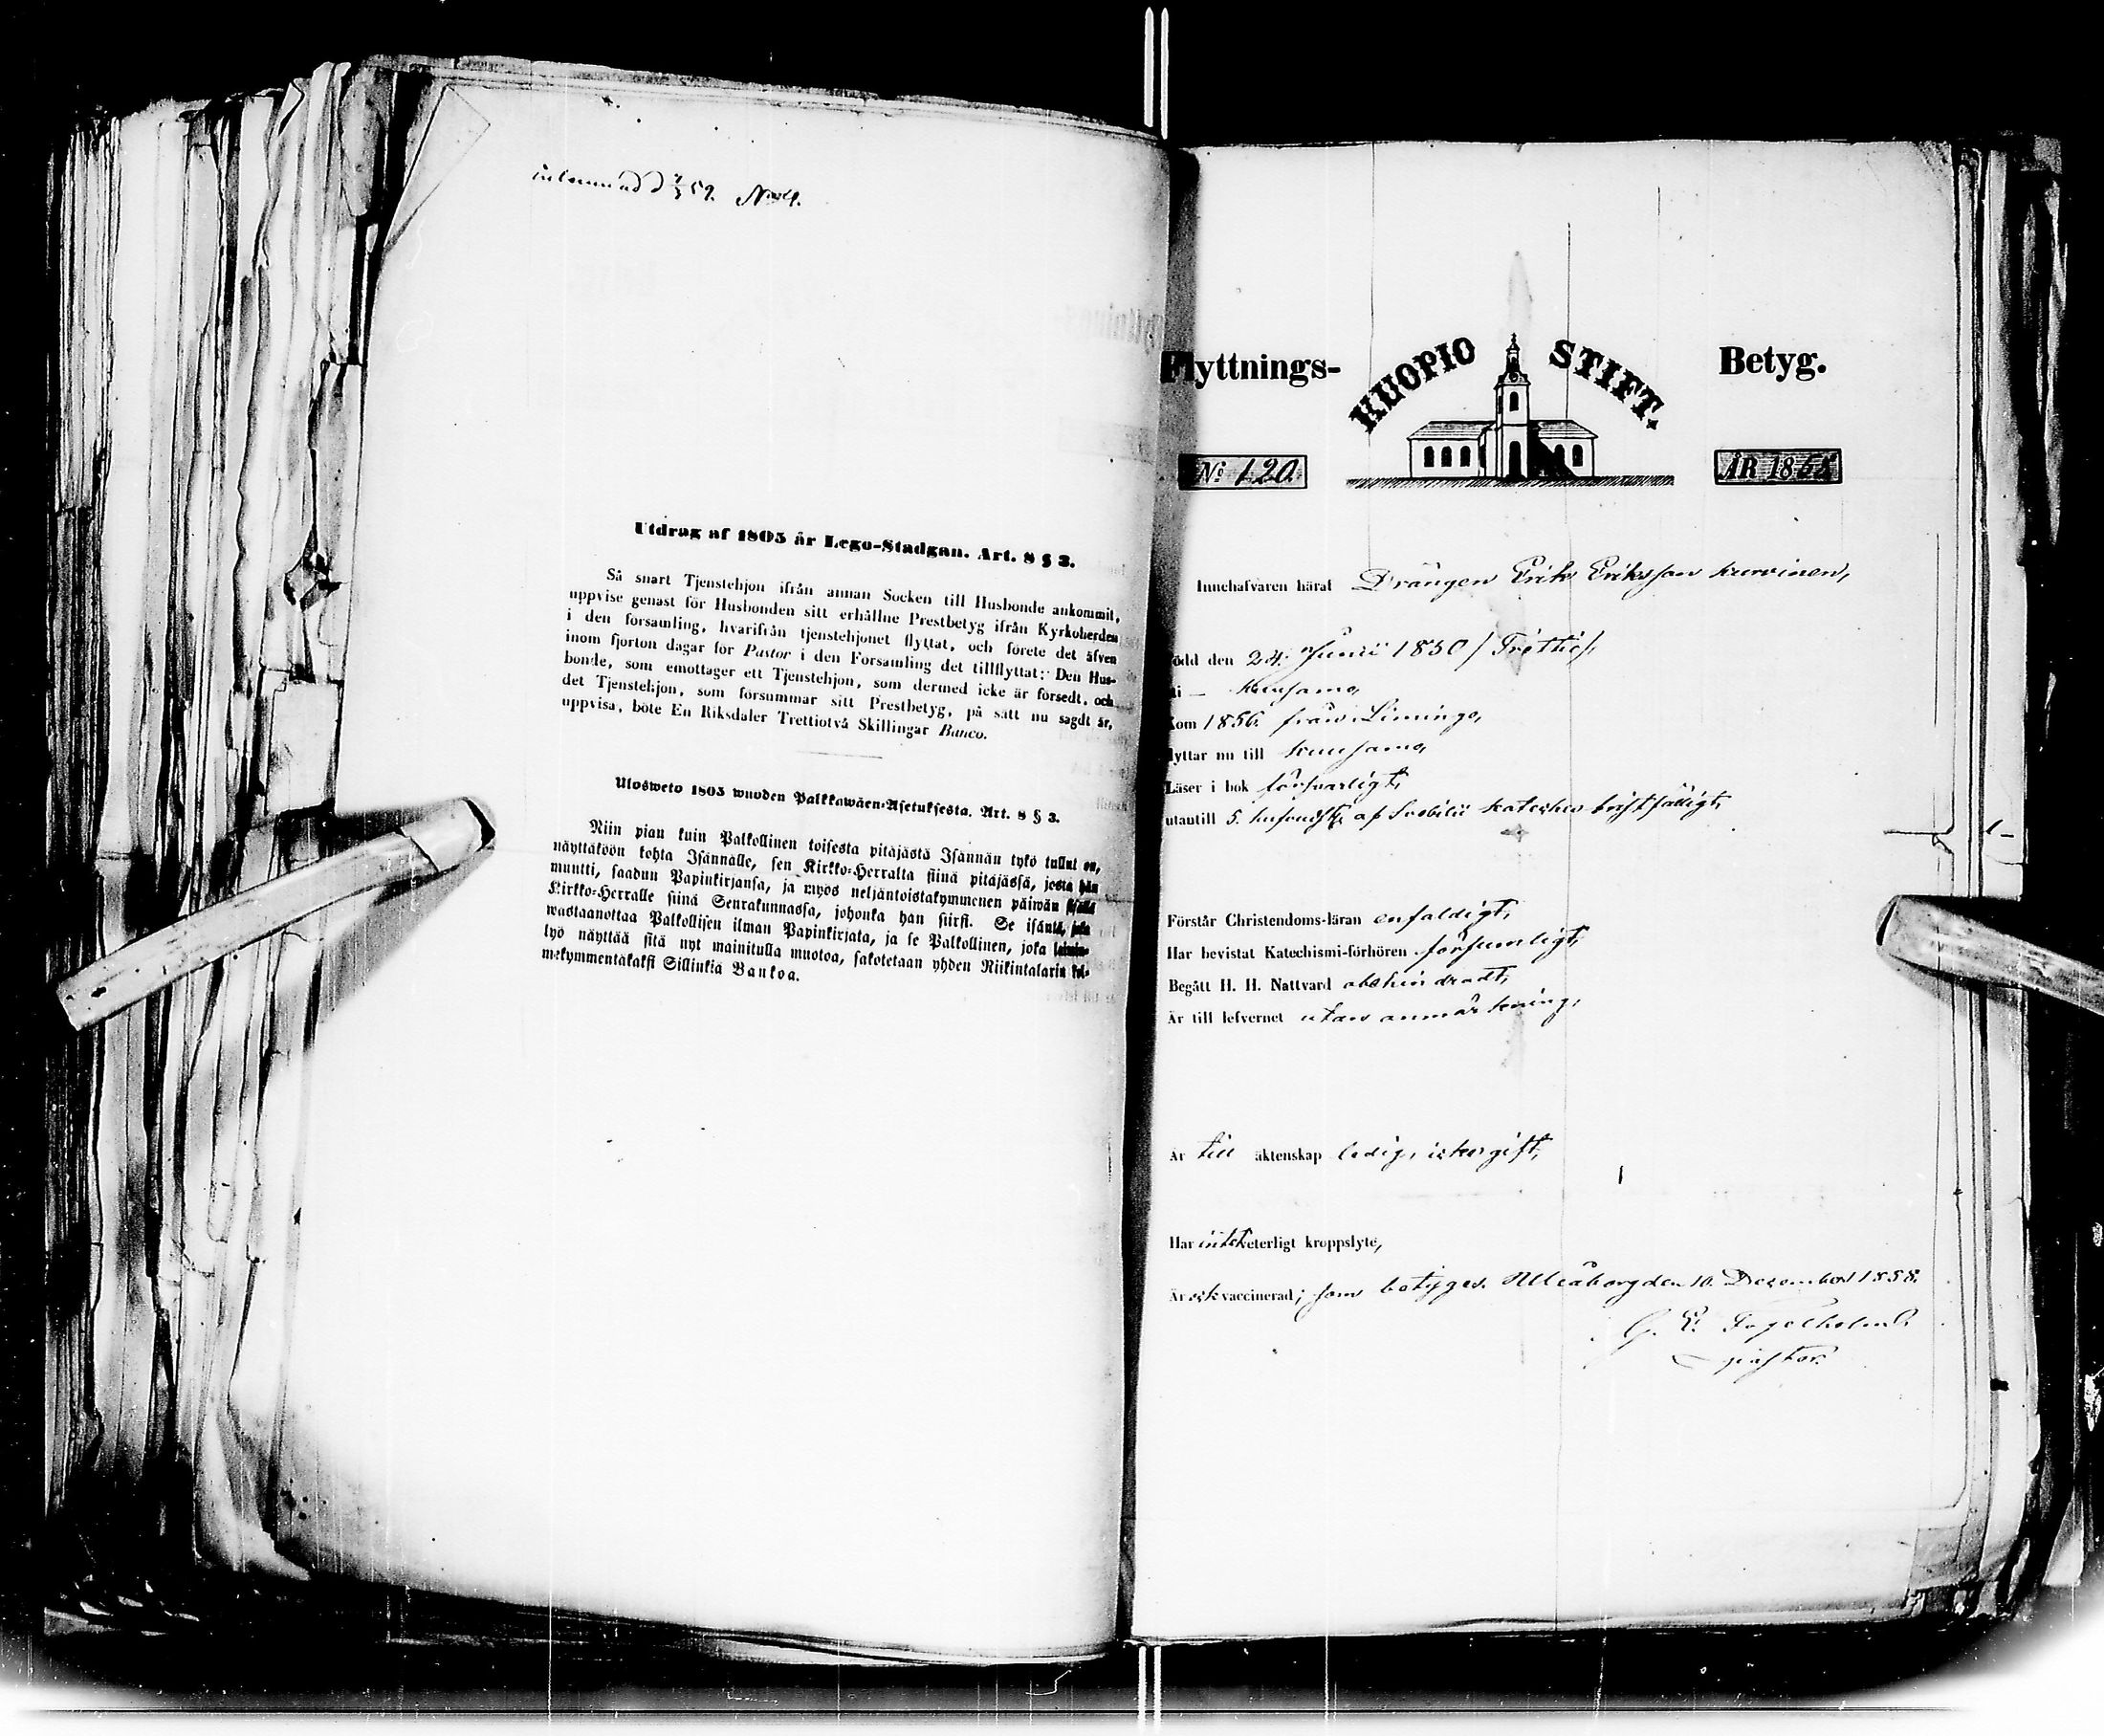 inlemnad d 7/3 59. N:o 4.
Utdrag af 1805 år Lego-Stadgan. Art. 8 § 3.
Så snart Tjenstehjon ifrån annan Socken till Husbonde ankommit,
uppvise genast för Husbonden sitt erhållne Prestbetyg ifrån Kyrkoherden
i den församling, hvarifrån tjenstehjonet flyttat, och förete det äfven
inom fjorton dagar för Pastor i den Församling det tillflyttat: Den Hus-
bonde, som emottager ett Tjenstehjon, som dermed icke är försedt, och
det Tjenstehjon, som försummar sitt Prestbetyg, på sätt nu sagdt är,
uppvisa, böte En Riksdaler Trettiotvå Skillingar Banco.
Ulosweto 1805 wuoden Palkkawäen-Asetuksesta. Art. 8 § 3.
Niin pian kuin Palkollinen toisesta pitäjästä Isännän tykö tullut on,
näyttäköön kohta Isännälle, sen Kirkko-Herralta siinä pitäjässä, josta hän
muutti, saadun Papinkirjansa, ja myös neljäntoistakymmenen päiwän sisällä
Kirkko-Herralle siinä Seurakunnassa, johonka hän siirsi. Se isäntä, joka
wastaanottaa Palkollisen ilman Papinkirjata, ja se Palkollinen, joka laimin-
lyö näyttää sitä nyt mainitulla muotoa, sakotetaan yhden Riikintalarin kol-
mekymmentäkaksi Sillinkiä Bankoa.
Flyttnings- KUOPIO STIFT. Betyg.
No 120. ÅR 1858
Innehafvaren häraf Drängen Erik Eriksson Kurvinen,
född den 24. Junii 1830 / Trettio /,
i — Kuusamo,
Kom 1856. från Limingo,
flyttar nu till Kuusamo,
Läser i bok försvarligt,
utantill 5. hufvudst. af Svebilii Kateches bristfälligt,
Förstår Christendoms-läran enfaldigt,
Har bevistat Katechismi-förhören försumligt,
Begått H. H. Nattvard obehindradt,
Är till lefvernet utan anmärkning,
Är till äktenskap ledig, icke gift,
Har intet veterligt kroppslyte,
Är ock vaccinerad; som betyges. Uleåborg den 10. December 1858.
G. E. Fogelholm
pastor.